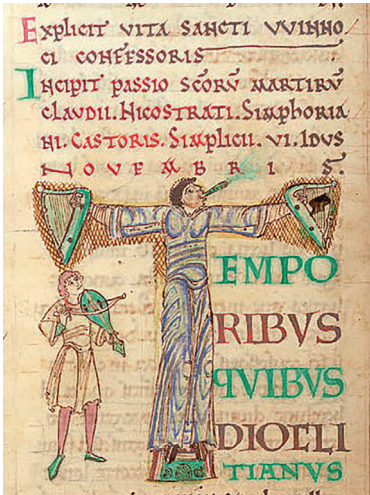 EXPLICIT VITA SANCTI VVINNO
CI CONFESSORIS
INCIPIT PASSIO SCORV̄ MARTIRV̄
CLAUDII. NICOSTRATI. SIMPHORIA
NI. CASTORIS. SIMPLICII. VI. IDUS
NOVEMBRIS.
TEMPO
RIBVS
QVIBVS
DIOCLI
TIANVS